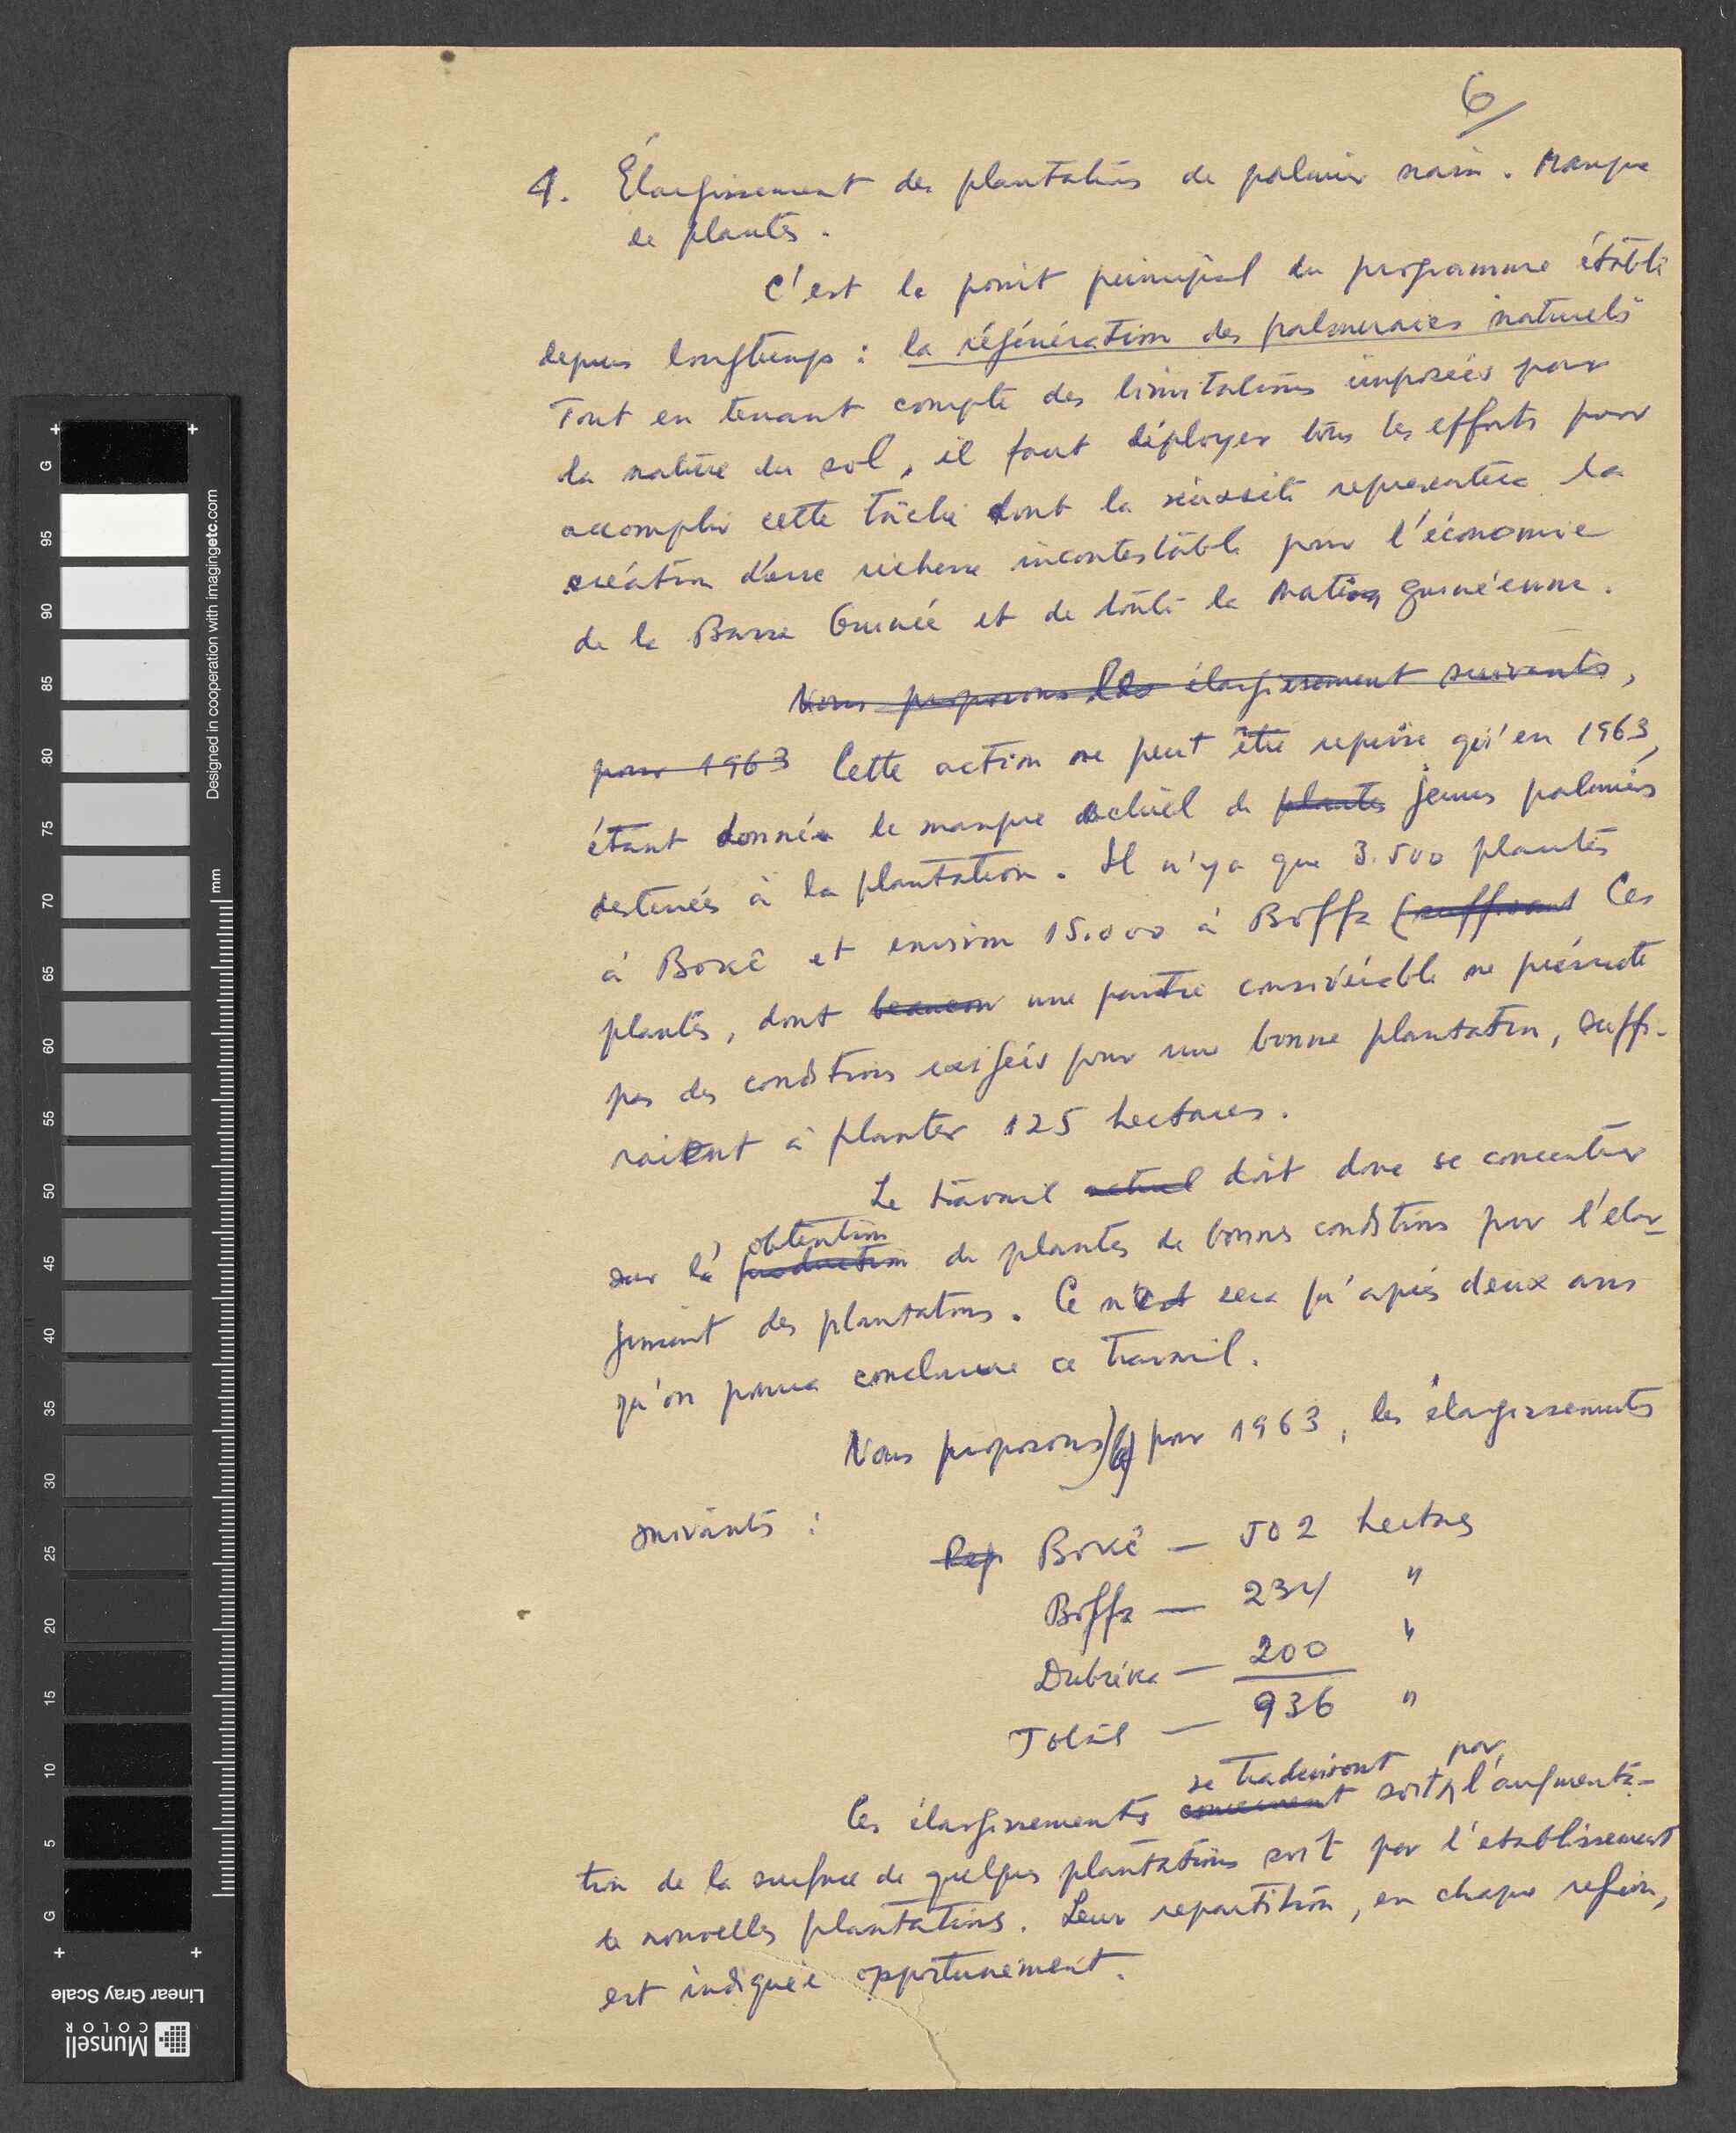 6/
4. Élargissement des plantations de palmier nain. Manque
de plantes.
C'est le point principal du programme établi
depuis longtemps : la régénération des palmeraies naturels
Tout en tenant compte des limitations imposées par
la nature du sol, il faut déployer tous les efforts pour
accomplir cette tâche dont la réussite representera la
création d'une richesse incontestable pour l'économie
de la Basse Guinée et de toute la nation guinéenne.
Nous proposons les élargissement suivants,
pour 1963 Cette action ne peut être reprise qu'en 1963,
étant donnée le manque actuel de plantes jeunes palmiers
destinés à la plantation. Il n'y a que 3.500 plantes
à Boké et environ 15.000 à Boffa (suffisant Ces
plantes, dont beaucou une partie considérable ne présente
pas des conditions exigées pour une bonne plantation, suffi-
raient à planter 125 hectares.
Le travail actuel doit donc se concentrer
obtention
sur l'a production de plantes de bonnes conditions pour l'élar-
gissement des plantations. Ce n'est sera qu'après deux ans
qu'on pourra conclure ce travail.
Nous proposons, pour 1963, les élargissements
suivants :
Rep Boké — 502 hectares
Boffa — 234 "
Dubréka — 200 "
Total — 936 "
se traduiront par
Ces élargissements concernent soit l'augmenta-
tion de la surface de quelques plantations soit par l'etablissement
de nouvelles plantations. Leur repartition, en chaque region,
est indiquée opportunement.
G
95
90
85
80
75
70
65
60
55
50
45
40
35
30
25
20
15
10
5
G
mm
Designed in cooperation with imagingetc.com
Linear Gray Scale
Munsell
COLOR